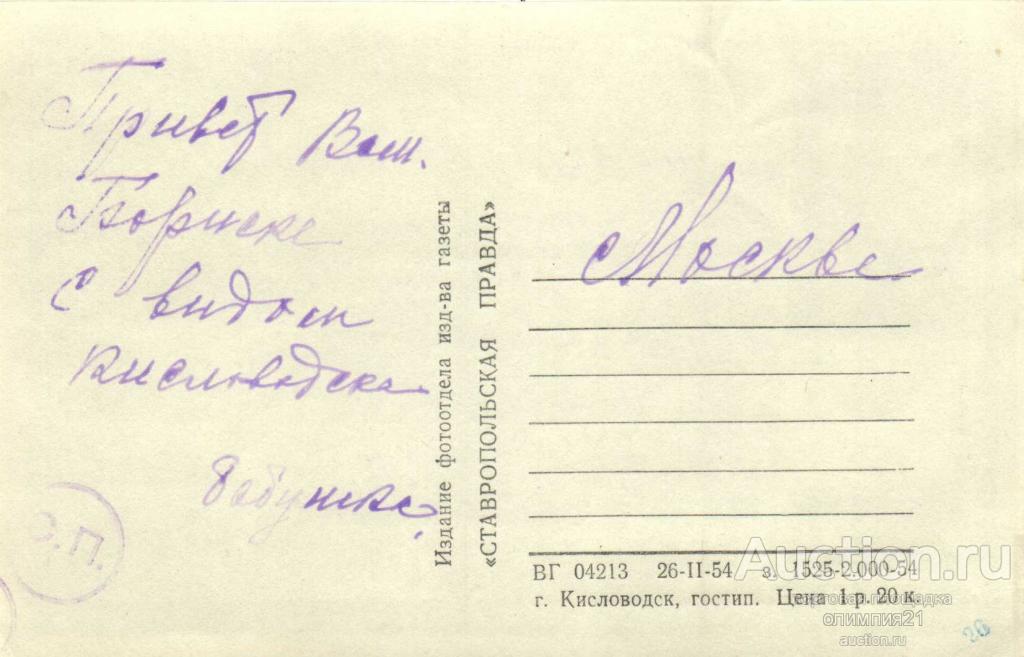 Привет Вам.
Бориске
с видом
Кисловодска
бабушка.
Москве
Издание фотоотдела изд-ва газеты
«СТАВРОПОЛЬСКАЯ ПРАВДА»
ВГ 04213 26-II-54 з. 1525-2.000-54
г. Кисловодск, гостип. Цена 1 р. 20 к.
О.П.
Auction.ru
торговая площадка
олимпия21
auction.ru
26